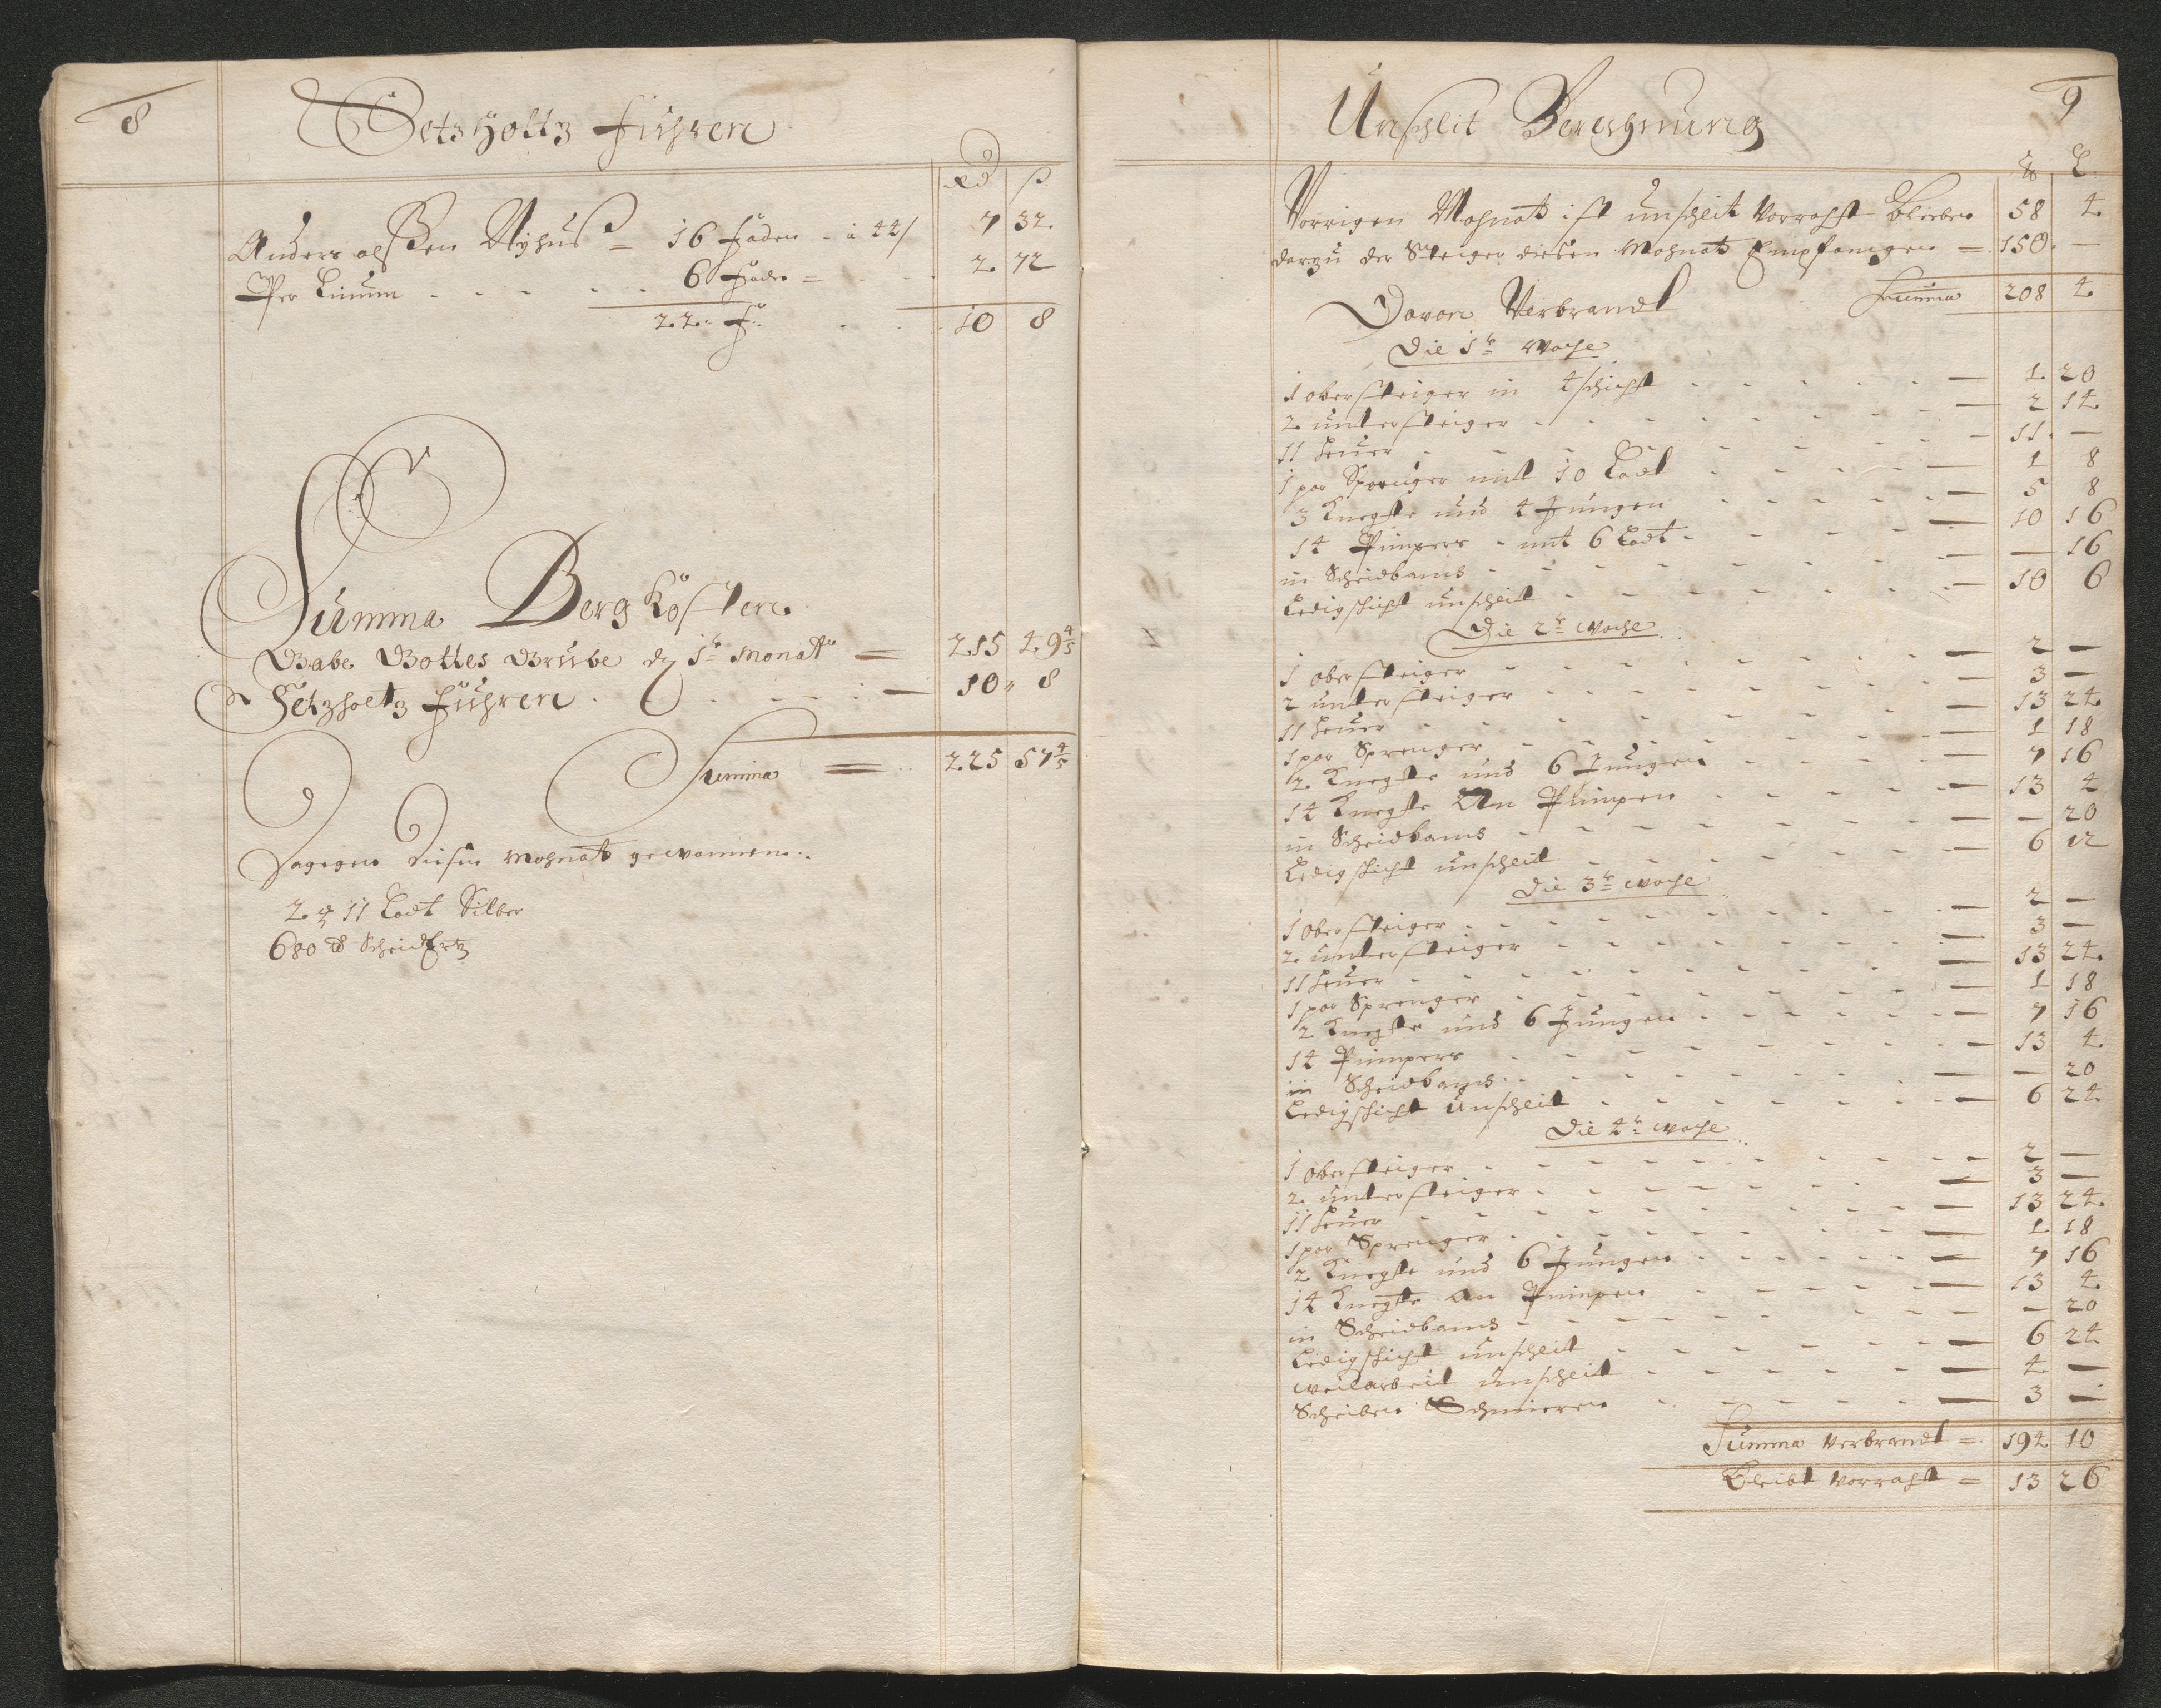 8
Setzholtz fuhren
Rd ß
Anders olßen Nÿhus = 16 Faden - à 44/ 7 32.
Per Linum - - - - - 6 Fade = - - 2. 72
22. F. - - 10 8
Summa Berg Kösten
Gabe Gottes Grube dz 1te Monatt = 215 49 4/5
Setzholtz fuhren - - - - - 10 8
Summa = 225 57 4/5
Dagegen diesen Mohnat gewonnen:
2 11 Lodt Silber
680 ℔ Scheid Ertz
9
Unschlit Berechnung
℔ L.
Vorrigen Mohnat ist unschlit Vorraht blieben 58 4.
darzu der Steiger dießen Mohnat Empfangen = 150. —
Summa 208 4.
Davon Verbrandt
Die 1te Woche
1 obersteiger in 4 schicht - - - - - — 1. 20
2. untersteiger - - - - - - - — 2 14.
11 heuer - - - - - - - — 11. —
1 par Sprenger mit 10 Lodt - - - - — 1 8
3 Knechte und 4 Jungen - - - - — 5 8
14 Pumpers - mit 6 Lodt - - - - — 10 16
in Scheidbanns - - - - - - - — — 16
Ledigschicht unschleit - - - - - - — 10 6
Die 2te Woche
1 obersteiger - - - - - - - — 2 —
2 untersteiger - - - - - - - — 3 —
11 heuer - - - - - - - — 13 24.
1 par Sprenger - - - - - - — 1 18
2. Knechte und 6 Jungen - - - - — 7 16
14 Knechte An Pumpen - - - - — 13 4
in Scheidbanns - - - - - - — — 20
Ledigschicht unschleit - - - - - — 6 12
Die 3te Woche
1 obersteiger - - - - - - - — 2 —
2. untersteiger - - - - - - - — 3 —
11 heuer - - - - - - - — 13 24.
1 par Sprenger - - - - - - — 1 18
2 Knechte und 6 Jungen - - - - — 7 16
14 Pumpers - - - - - - — 13 4.
in Scheidbanns - - - - - - — — 20
Ledigschicht Unschleit - - - - - — 6 24.
Die 4te Woche
1 obersteiger - - - - - - - — 2 —
2. untersteiger - - - - - - - — 3 —
11 heuer - - - - - - - — 13 24.
1 par Sprenger - - - - - - — 1 18
2 Knechte und 6 Jungen - - - - — 7 16
14 Knechte An Pumpen - - - - — 13 4.
in Scheidbanns - - - - - - — — 20
Ledigschicht unschleit - - - - - — 6 24
weilarbeit unschleit - - - - - — 4. —
Scheiben Schmieren - - - - - — 3 —
Summa verbrandt = 194 10
Bleibt Vorraht = 13 26